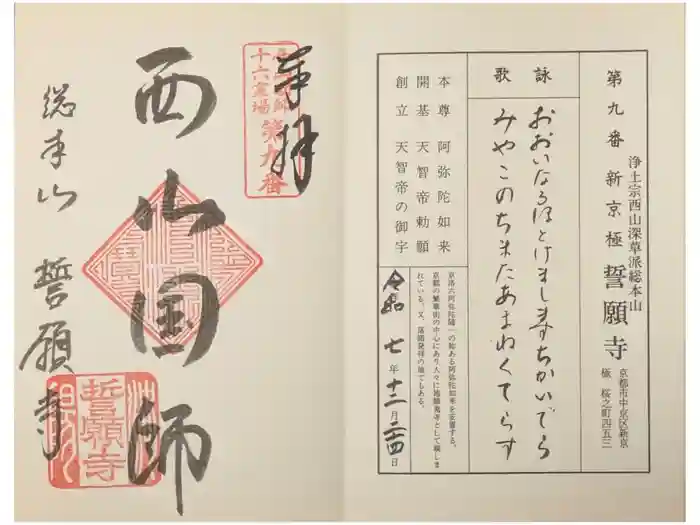 第九番 新京極 誓願寺
浄土宗西山深草派総本山
京都市中京区新京
極 桜之町四五三
詠歌
おおいなるほとけましますちかいでら
みやこのちまたあまねくてらす
本尊 阿弥陀如来
開基 天智帝勅願
創立 天智帝の御宇
京洛六阿弥陀随一の称ある阿弥陀如来を安置する。
京都の繁華街の中心にあり人々に
れている。又、落語発祥の地でもある。
令和 七年十二月二四日
奉拝
十六霊場 第九番
西山国師
総本山 誓願寺
誓願寺